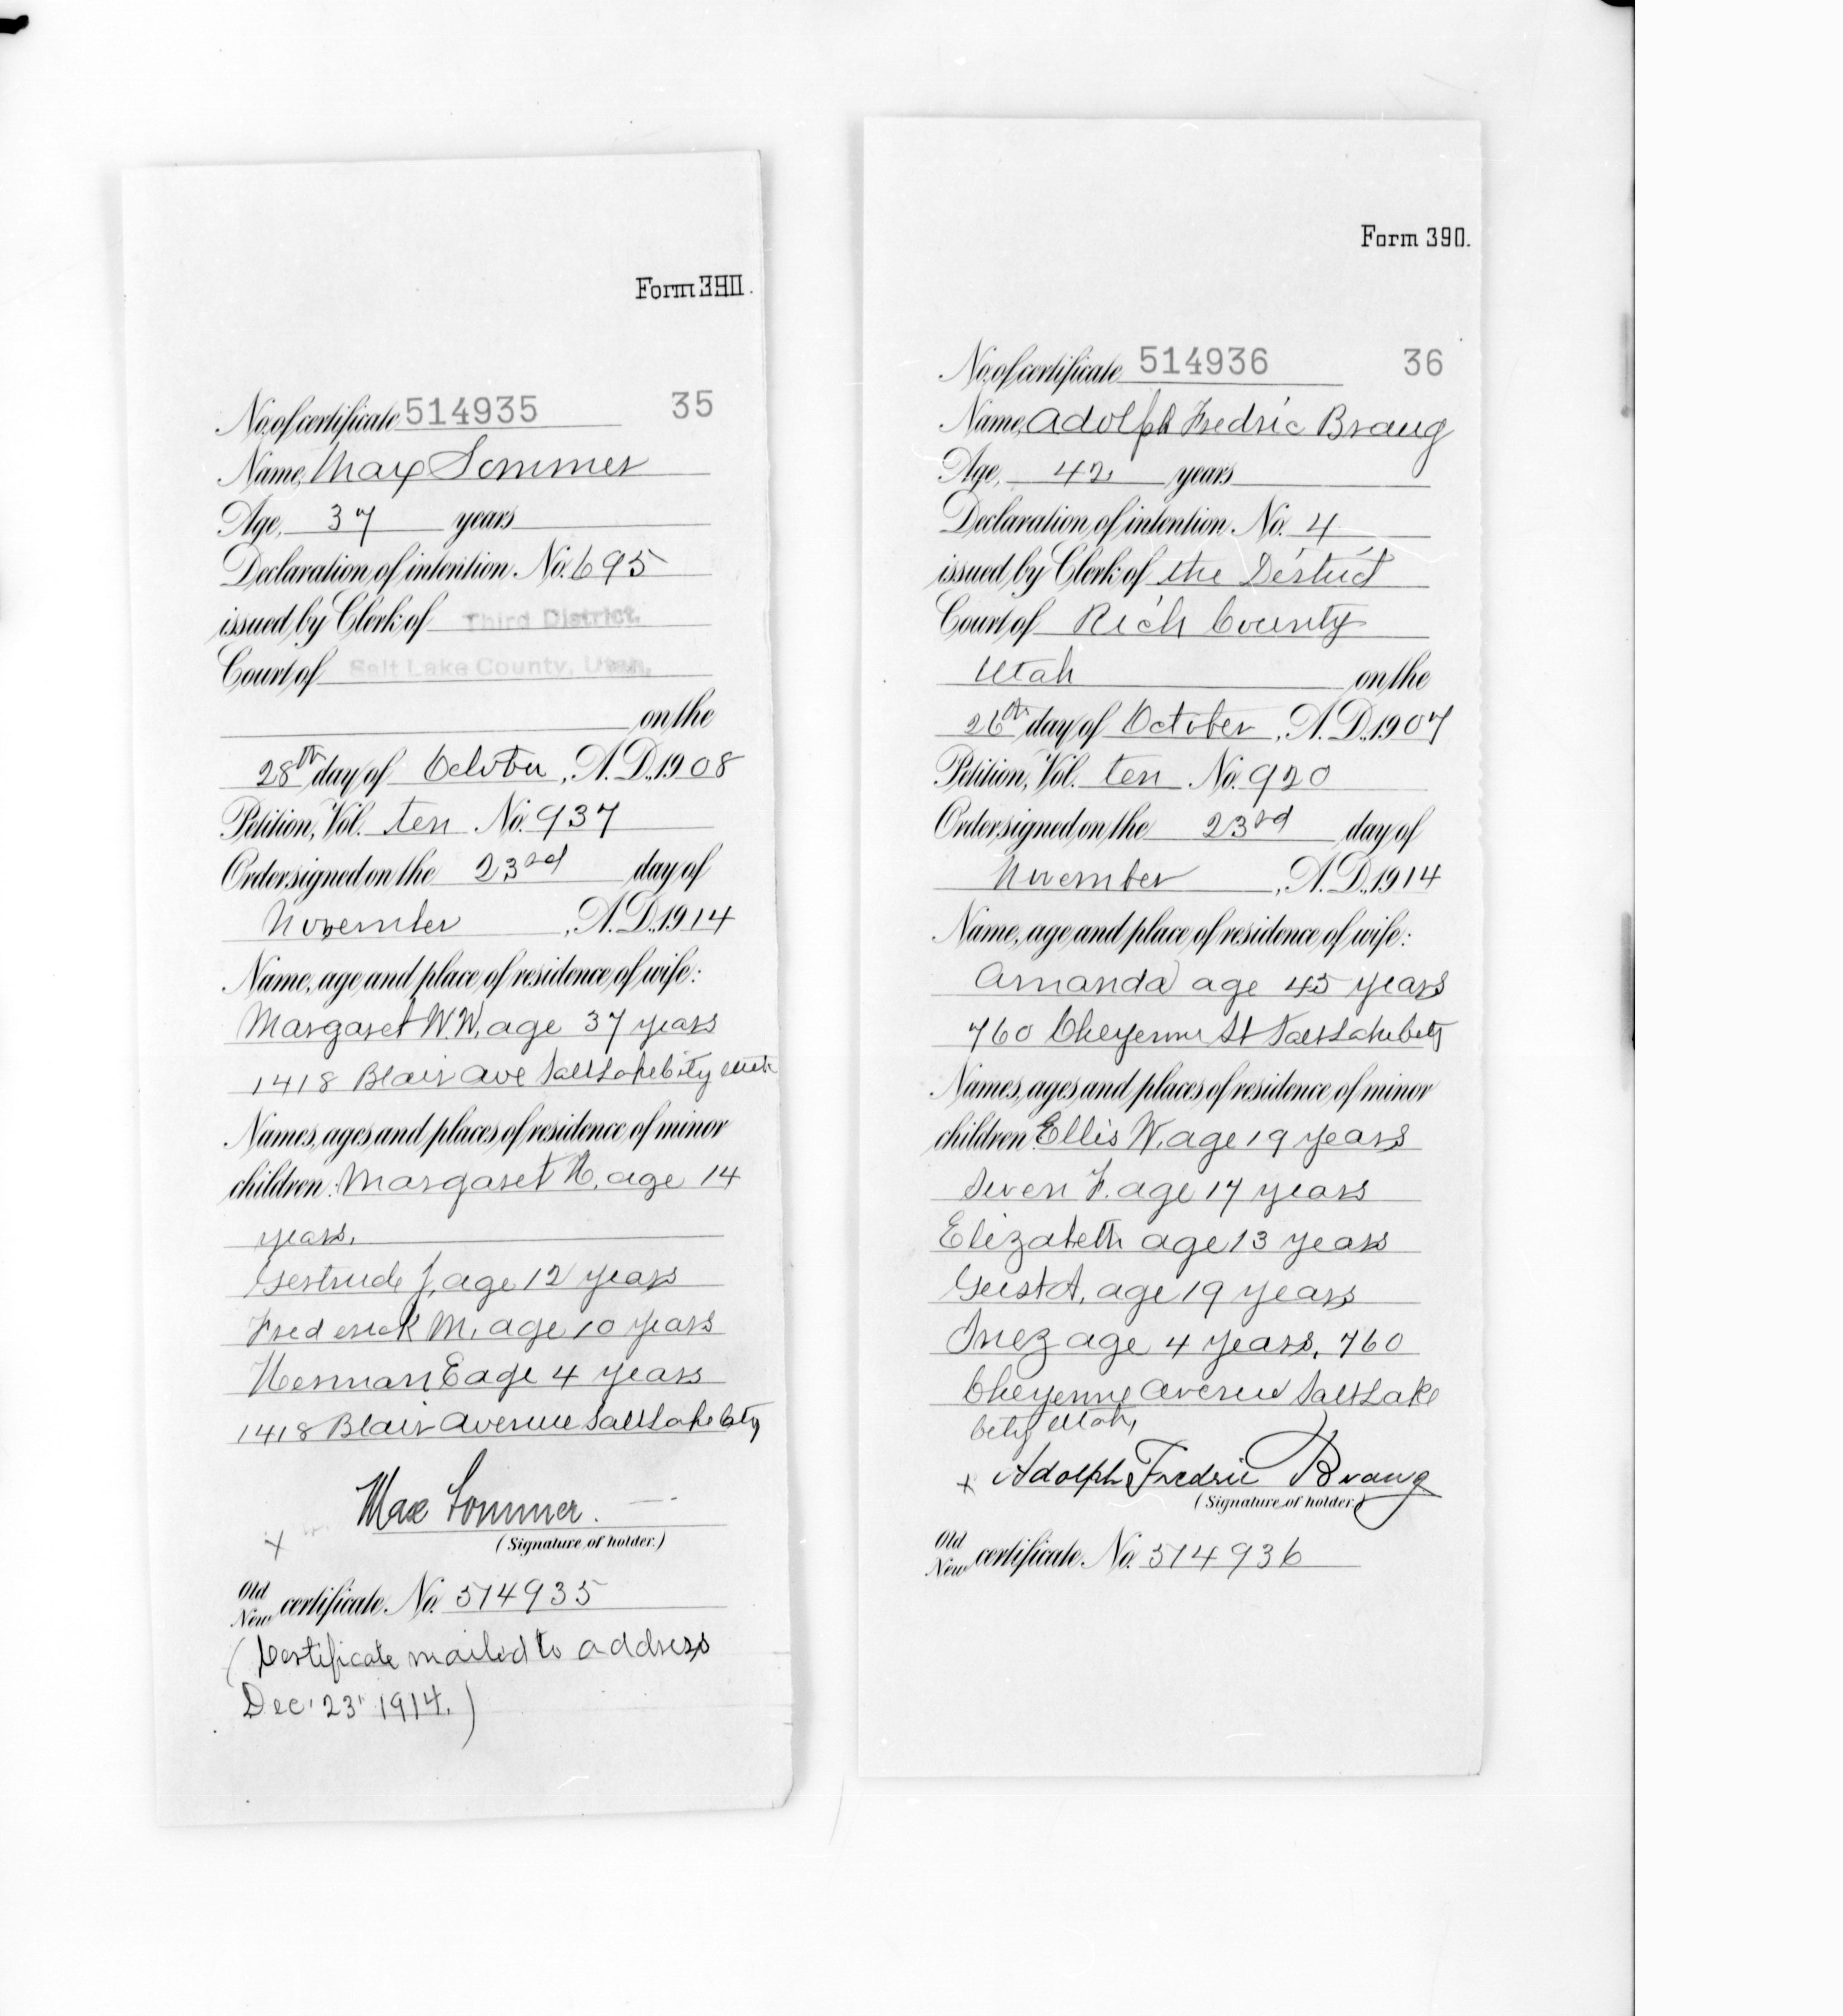 Form 390.
No. of certificate 514935 35
Name, Max Sommer
Age, 37 years
Declaration of intention No. 695
issued by Clerk of Third District.
Court of Salt Lake County, Utah.
on the
28th day of October, A.D. 1908
Petition, Vol. ten No. 937
Order signed on the 23rd day of
November, A.D. 1914
Name, age and place of residence of wife:
Margaret W.W, age 37 years
1418 Blair Ave Salt Lake City Utah
Names, ages and places of residence of minor
children: Margaret N, age 14
years.
Gertrude J, age 12 years
Frederick M, age 10 years
Herman E age 4 years
1418 Blair Avenue Salt Lake City
x Max Sommer.
(Signature of holder.)
Old
New certificate No. 514935
(Certificate mailed to address
Dec. 23" 1914.)
Form 390.
No. of certificate 514936 36
Name, Adolph Fredric Braug
Age, 42 years
Declaration of intention No. 4
issued by Clerk of the District
Court of Rich County
Utah on the
26th day of October, A.D. 1907
Petition, Vol. ten No. 920
Order signed on the 23rd day of
November, A.D. 1914
Name, age and place of residence of wife:
Amanda age 45 years
760 Cheyenne St Salt Lake City
Names, ages and places of residence of minor
children: Ellis W, age 19 years
Sven F. age 17 years
Elizabeth age 13 years
Gust A, age 19 years
Inez age 4 years, 760
Cheyenne Avenue Salt Lake
City Utah,
x Adolph Fredric Braug
(Signature of holder.)
Old
New certificate No. 514936